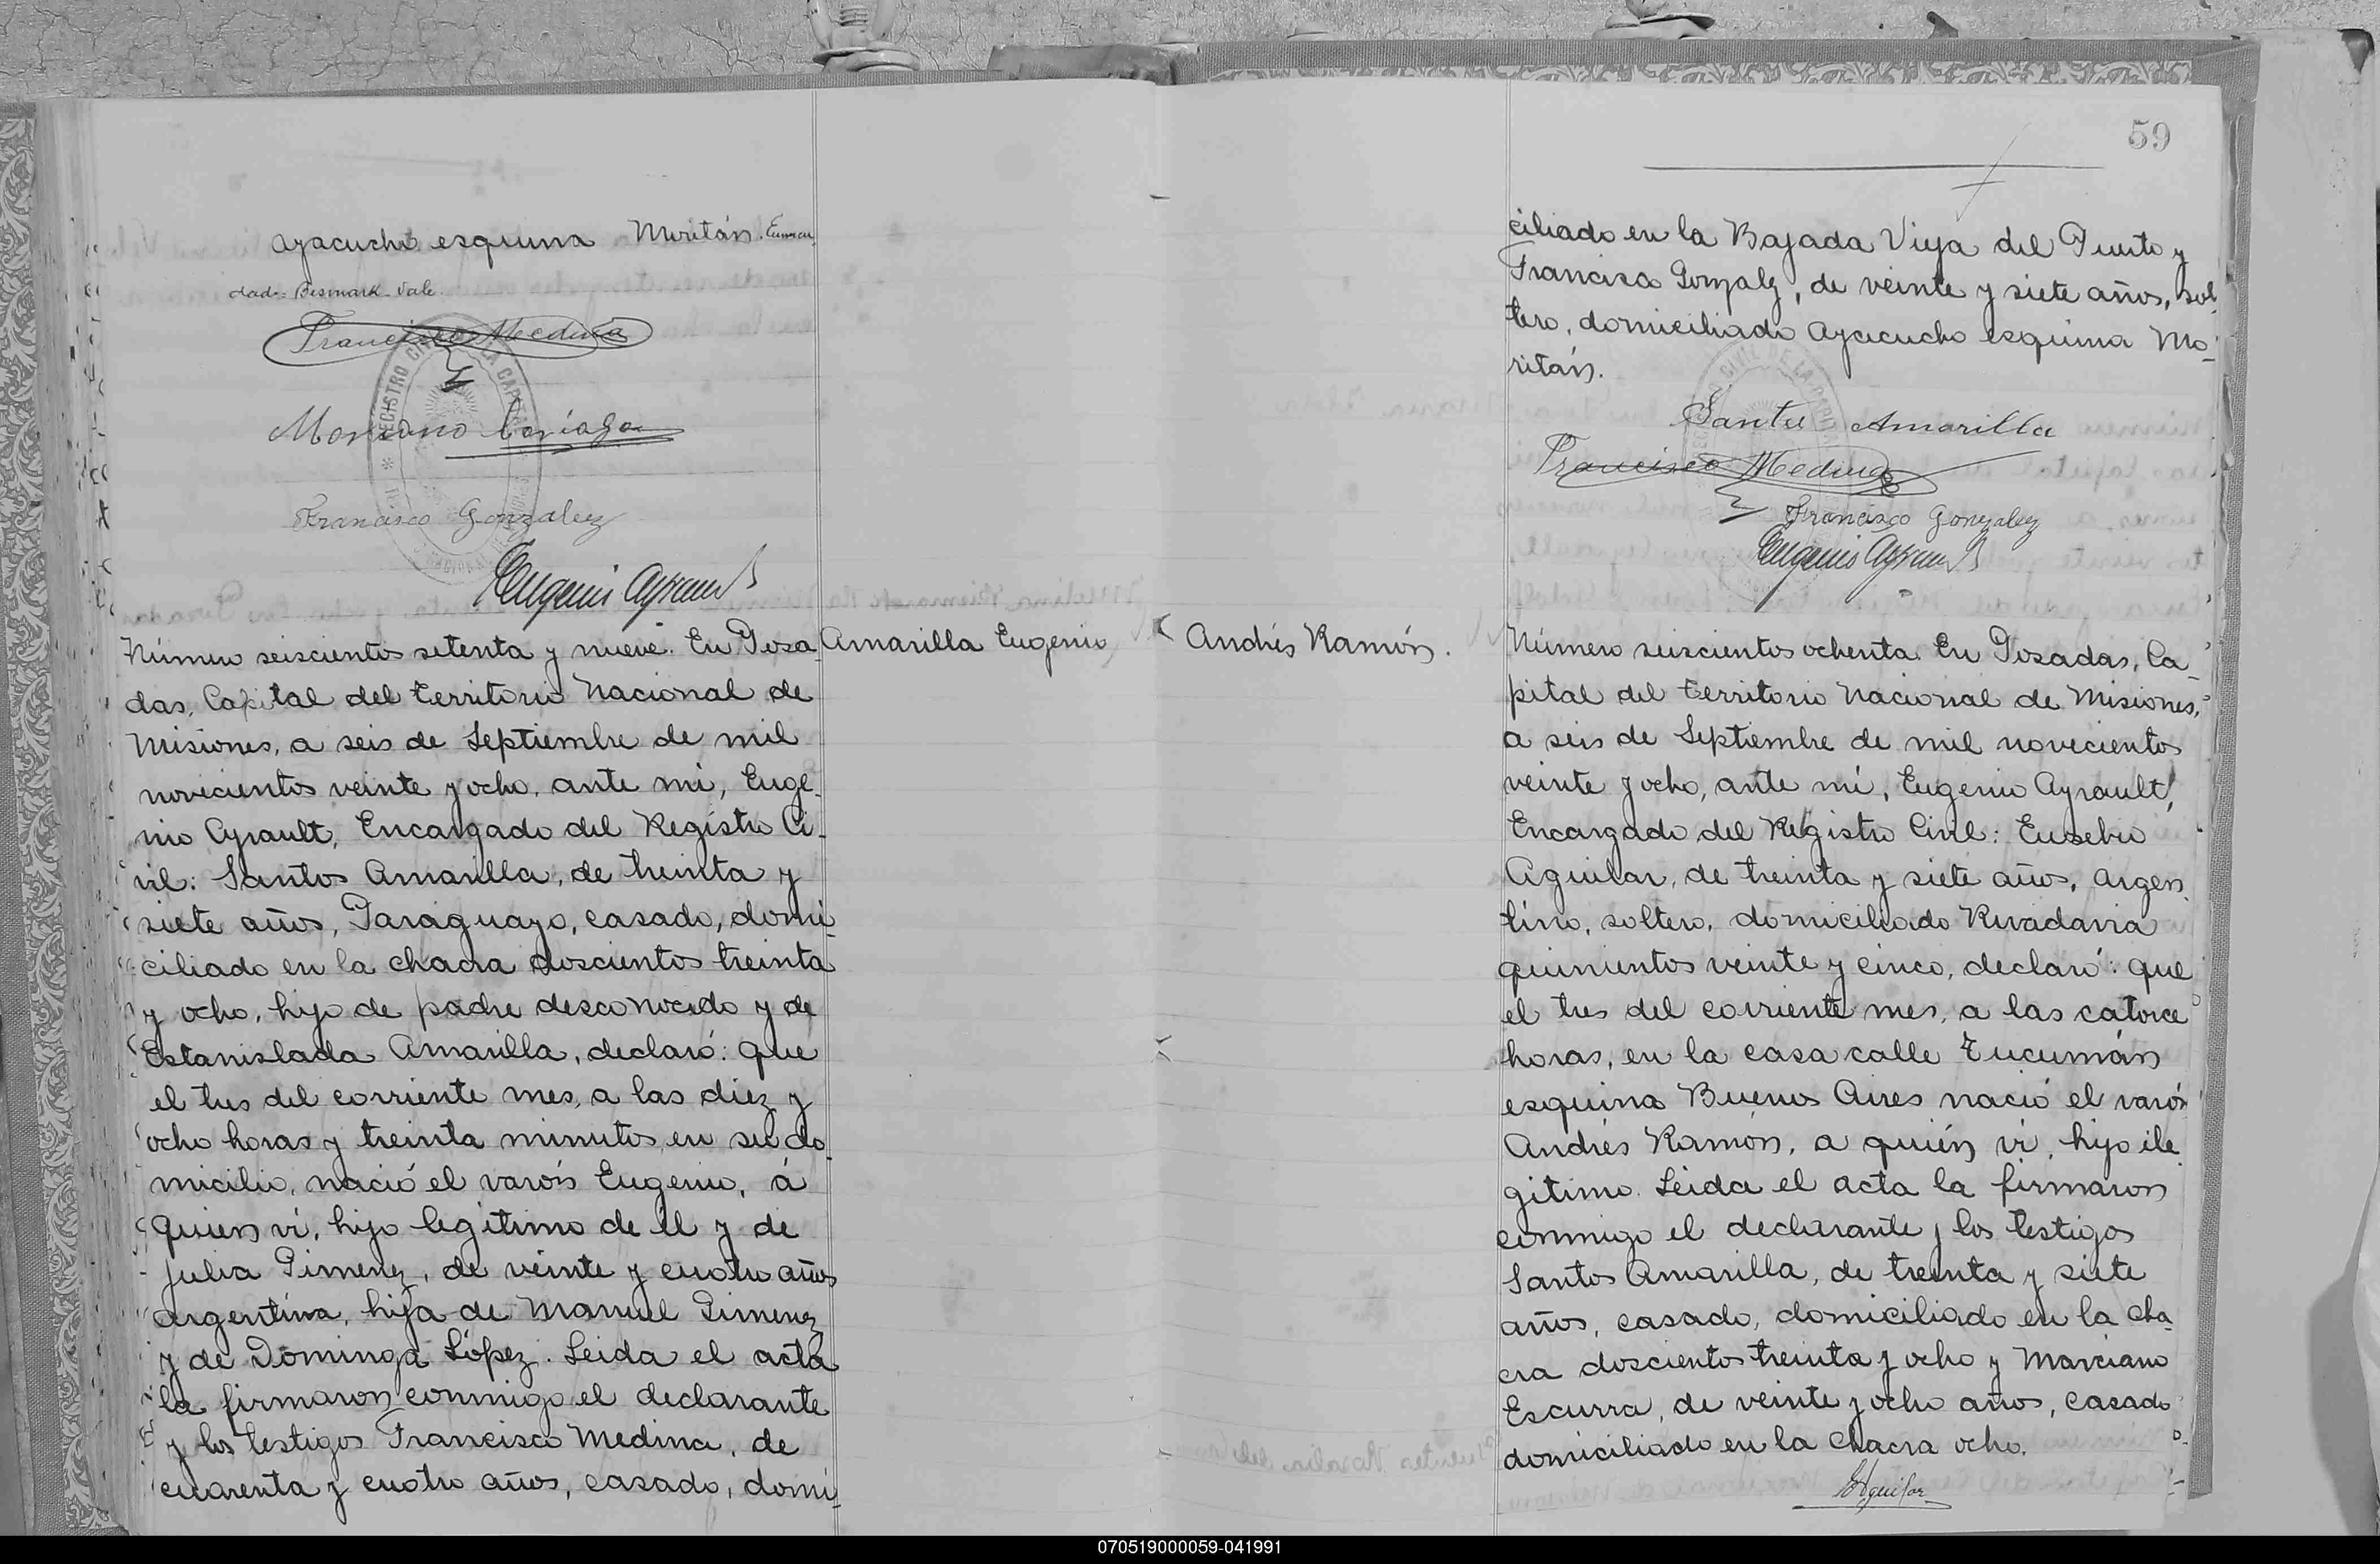 ayacucho esquina Moritán. Enmen
dado: Bismark. Vale.
Francisco Medina
Marciano
Francisco Gonzalez
Eugenio Ayrault
Número seiscientos setenta y nueve. En Posa-
das, Capital del territorio Nacional de
Misiones, a seis de Septiembre de mil
novecientos veinte y ocho, ante mí, Euge-
nio Ayrault, Encargado del Registro Ci-
vil: Santos Amarilla, de treinta y
siete años, Paraguayo, casado, domi-
ciliado en la chacra doscientos treinta
y ocho, hijo de padre desconocido y de
Estanislada Amarilla, declaró: que
el tres del corriente mes, a las diez y
ocho horas y treinta minutos, en su do-
micilio, nació el varón Eugenio, á
quien ví, hijo legítimo de él y de
Julia Gimenez, de veinte y cuatro años
argentina, hija de Manuel Gimenez
y de Dominga López. Leida el acta
la firmaron conmigo el declarante
y los testigos Francisco Medina, de
cuarenta y cuatro años, casado, domi-
Amarilla Eugenio
Andrés Ramón.
59
ciliado en la Bajada Vieja del Puerto y
Francisco Gonzalez, de veinte y siete años, sol-
tero, domiciliado Ayacucho esquina Mo-
ritán.
Santos Amarilla
Francisco Medina
Francisco Gonzalez
Eugenio Ayrault
Número seiscientos ochenta. En Posadas, Ca-
pital del territorio Nacional de Misiones,
a seis de Septiembre de mil novecientos
veinte y ocho, ante mí, Eugenio Ayrault,
Encargado del Registro Civil: Eusebio
Aguilar, de treinta y siete años, argen-
tino, soltero, domiciliado Rivadavia
quinientos veinte y cinco, declaró: que
el tres del corriente mes, a las catorce
horas, en la casa calle Tucumán
esquina Buenos Aires nació el varón
Andrés Ramón, a quién ví, hijo ile-
gitimo. Leida el acta la firmaron
conmigo el declarante y los testigos
Santos Amarilla, de treinta y siete
años, casado, domiciliado en la cha-
cra doscientos treinta y ocho y Marciano
Escurra, de veinte y ocho años, casado
domiciliado en la chacra ocho.
EAguilar
070519000059-041991